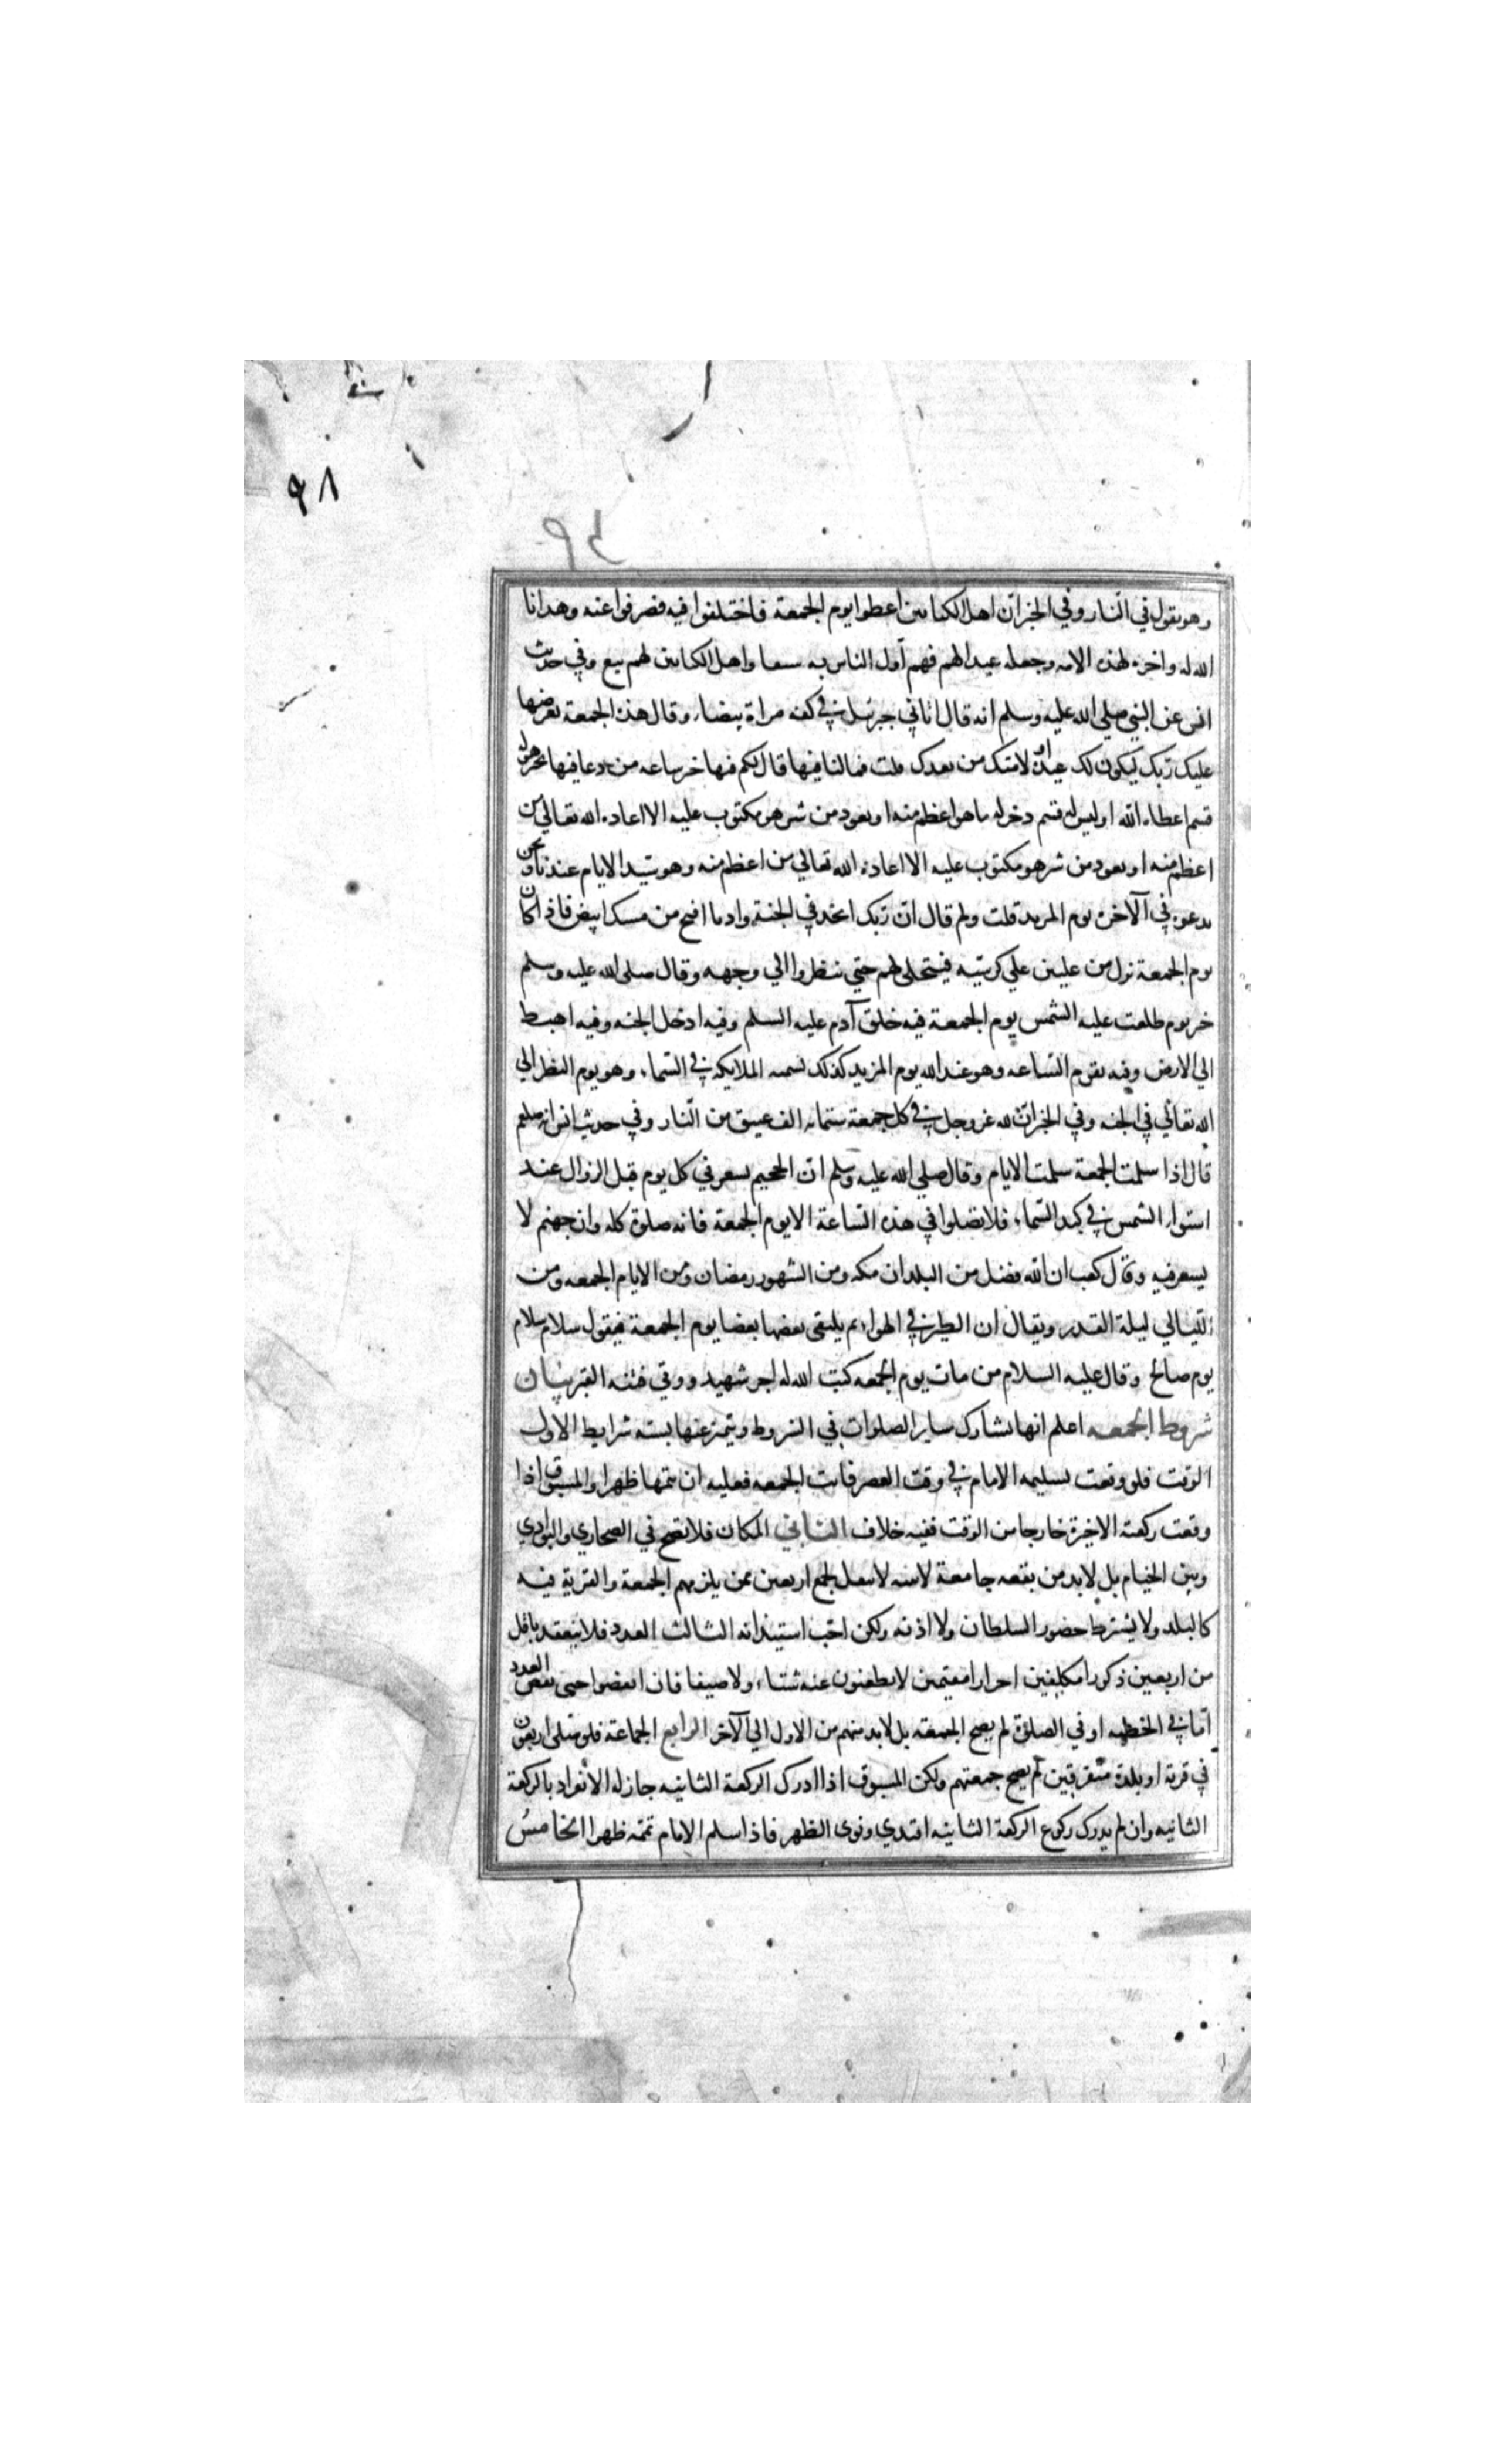 ٩٨
٩٤
وهو يقول في النار وفي الخبر ان اهل الكتابين اعطوا يوم الجمعة فاختلفوا فيه فصرفوا عنه وهدانا
الله له واخره لهذه الامه وجعله عيدا لهم فهم اول الناس به سبقا واهل الكتابين لهم تبع وفي حديث
انس عن النبي صلي الله عليه وسلم انه قال اتاني جبرئيل في كفه مراة بيضاء وقال هذه الجمعة يعرضها
عليك ربك ليكون لك عيدا ولامتك من بعدك قلت فما لنا فيها قال لكم فيها خير ساعه من دعا فيها بخير هو له
قسم اعطاه الله او ليس له قسم دخر له ما هو اعظم منه او تعوذ من شر هو مكتوب عليه الا اعاذه الله تعالي من
اعظم منه او تعوذ من شر هو مكتوب عليه الا اعاذه الله تعالي من اعظم منه وهو سيد الايام عندنا ونحن
ندعوه في الآخرة يوم المزيد قلت ولم قال ان ربك اتخذ في الجنة واديا افيح من مسك ابيض فاذا كان
يوم الجمعة نزل من عليين علي كرسيه فيتجلى لهم حتي ينظروا الي وجهه وقال صلى الله عليه وسلم
خير يوم طلعت عليه الشمس يوم الجمعة فيه خلق آدم عليه السلم وفيه ادخل الجنه وفيه اهبط
الي الارض وفيه تقوم الساعه وهو عند الله يوم المزيد كذلك تسميه الملايكه في السماء وهو يوم النظر الي
الله تعالي في الجنه وفي الخبر ان لله عز وجل في كل جمعة ستمايه الف عتيق من النار وفي حديث انس انه صلعم
قال اذا سلمت الجمعة سلمت الايام وقال صلي الله عليه وسلم ان الجحيم تسعر في كل يوم قبل الزوال عند
استواء الشمس في كبد السماء فلا تصلوا في هذه الساعة الا يوم الجمعة فانه صلوة كله وان جهنم لا
يسعر فيه وقال كعب ان الله فضل من البلدان مكه ومن الشهور رمضان ومن الايام الجمعه ومن
الليالي ليلة القدر ويقال ان الطير في الهواء يلتقي بعضها بعضا يوم الجمعة فيقول سلام سلام
يوم صالح وقال عليه السلام من مات يوم الجمعه كتب الله له اجر شهيد ووقي فتنه القبر بيان
شروط الجمعه اعلم انها تشارك ساير الصلوات في الشروط ويتميز عنها بسته شرايط الاول
الوقت فلو وقعت تسليمه الامام في وقت العصر فاتت الجمعه فعليه ان يتمها ظهرا والمسبوق اذا
وقعت ركعته الاخيرة خارجا من الوقت ففيه خلاف الثاني المكان فلا تصح في الصحاري والبوادي
وبين الخيام بل لا بد من بقعه جامعة لابنيه لا تنقل لجمع اربعين ممن يلزمهم الجمعة والقرية فيه
كالبلد ولا يشترط حضور السلطان ولا اذنه ولكن احب استيذانه الثالث العدد فلا تنعقد باقل
من اربعين ذكورا مكلفين احرارا مقيمين لا يظعنون عنه شتاء ولا صيفا فان انفضوا حتى نقص العدد
اما في الخطبه او في الصلوة لم يصح الجمعه بل لا بد منهم من الاول الي الآخر الرابع الجماعة فلو صلى اربعون
في قرية او بلدة متفرقين لم يصح جمعتهم ولكن المسبوق اذا ادرك الركعة الثانيه جاز له الانفراد بالركعة
الثانيه وان لم يدرك ركوع الركعة الثانيه اقتدي ونوى الظهر فاذا سلم الامام تممه ظهرا الخامس